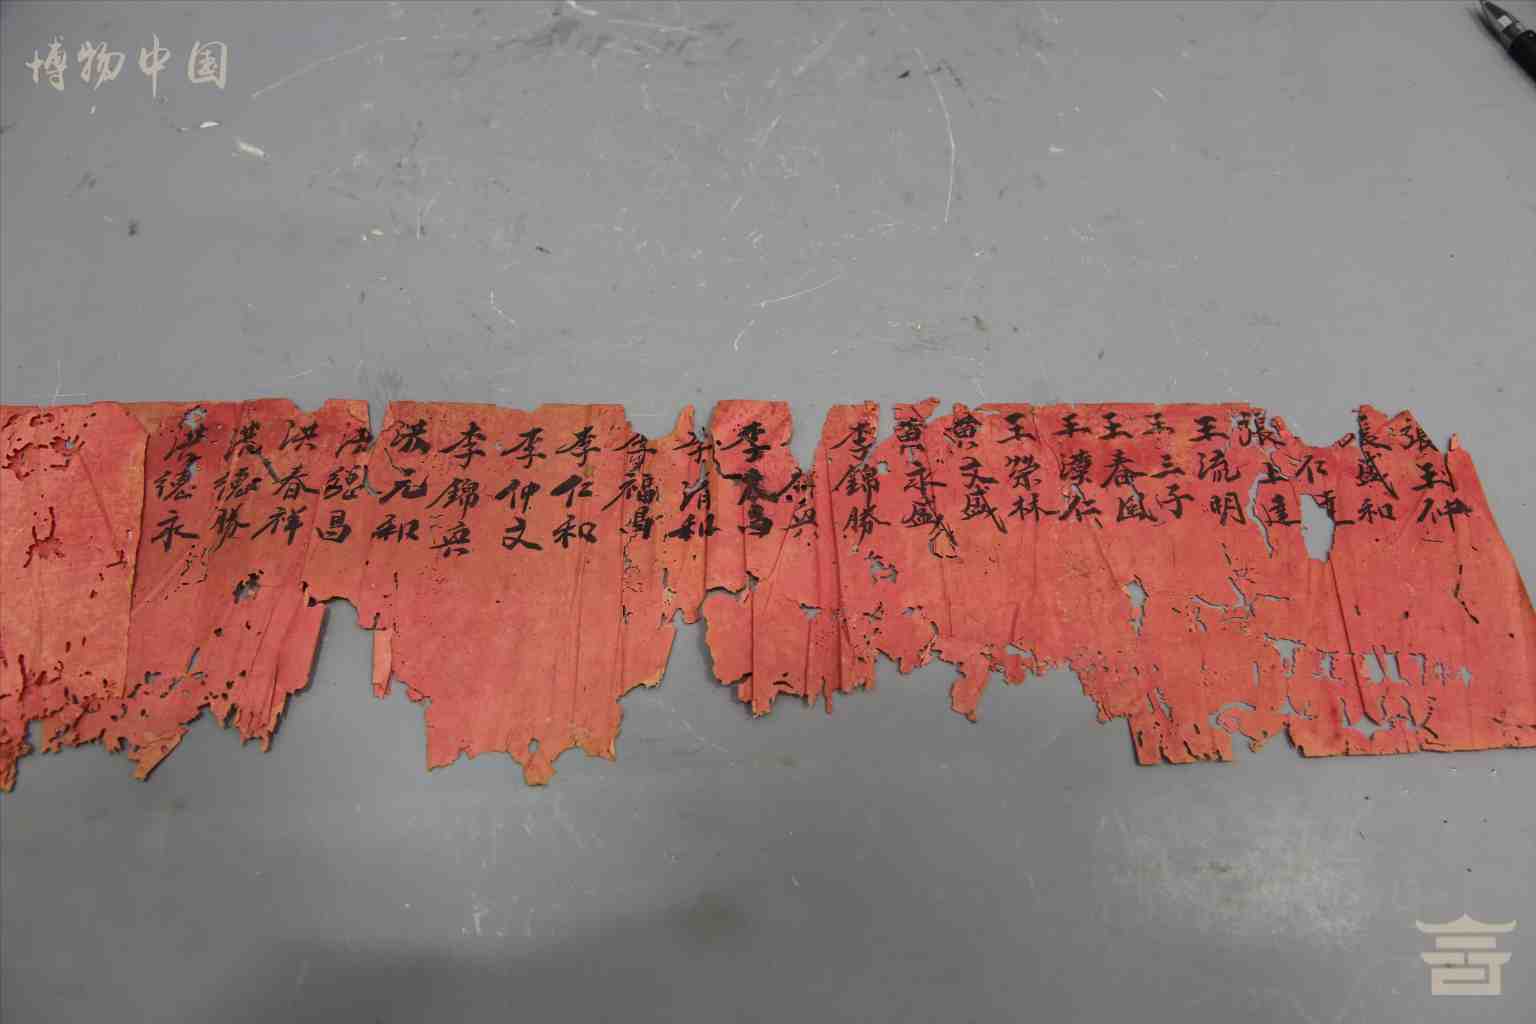 博物中国
張玉仲
張盛和
仁達
張上達
王流明
王三子
王春國
王漢仁
王榮林
黄文盛
黄永盛
李錦勝
興
李
李清和
李福昌
李仁和
李仲文
李錦興
洪元和
洪昌
洪春祥
洪德勝
洪德永